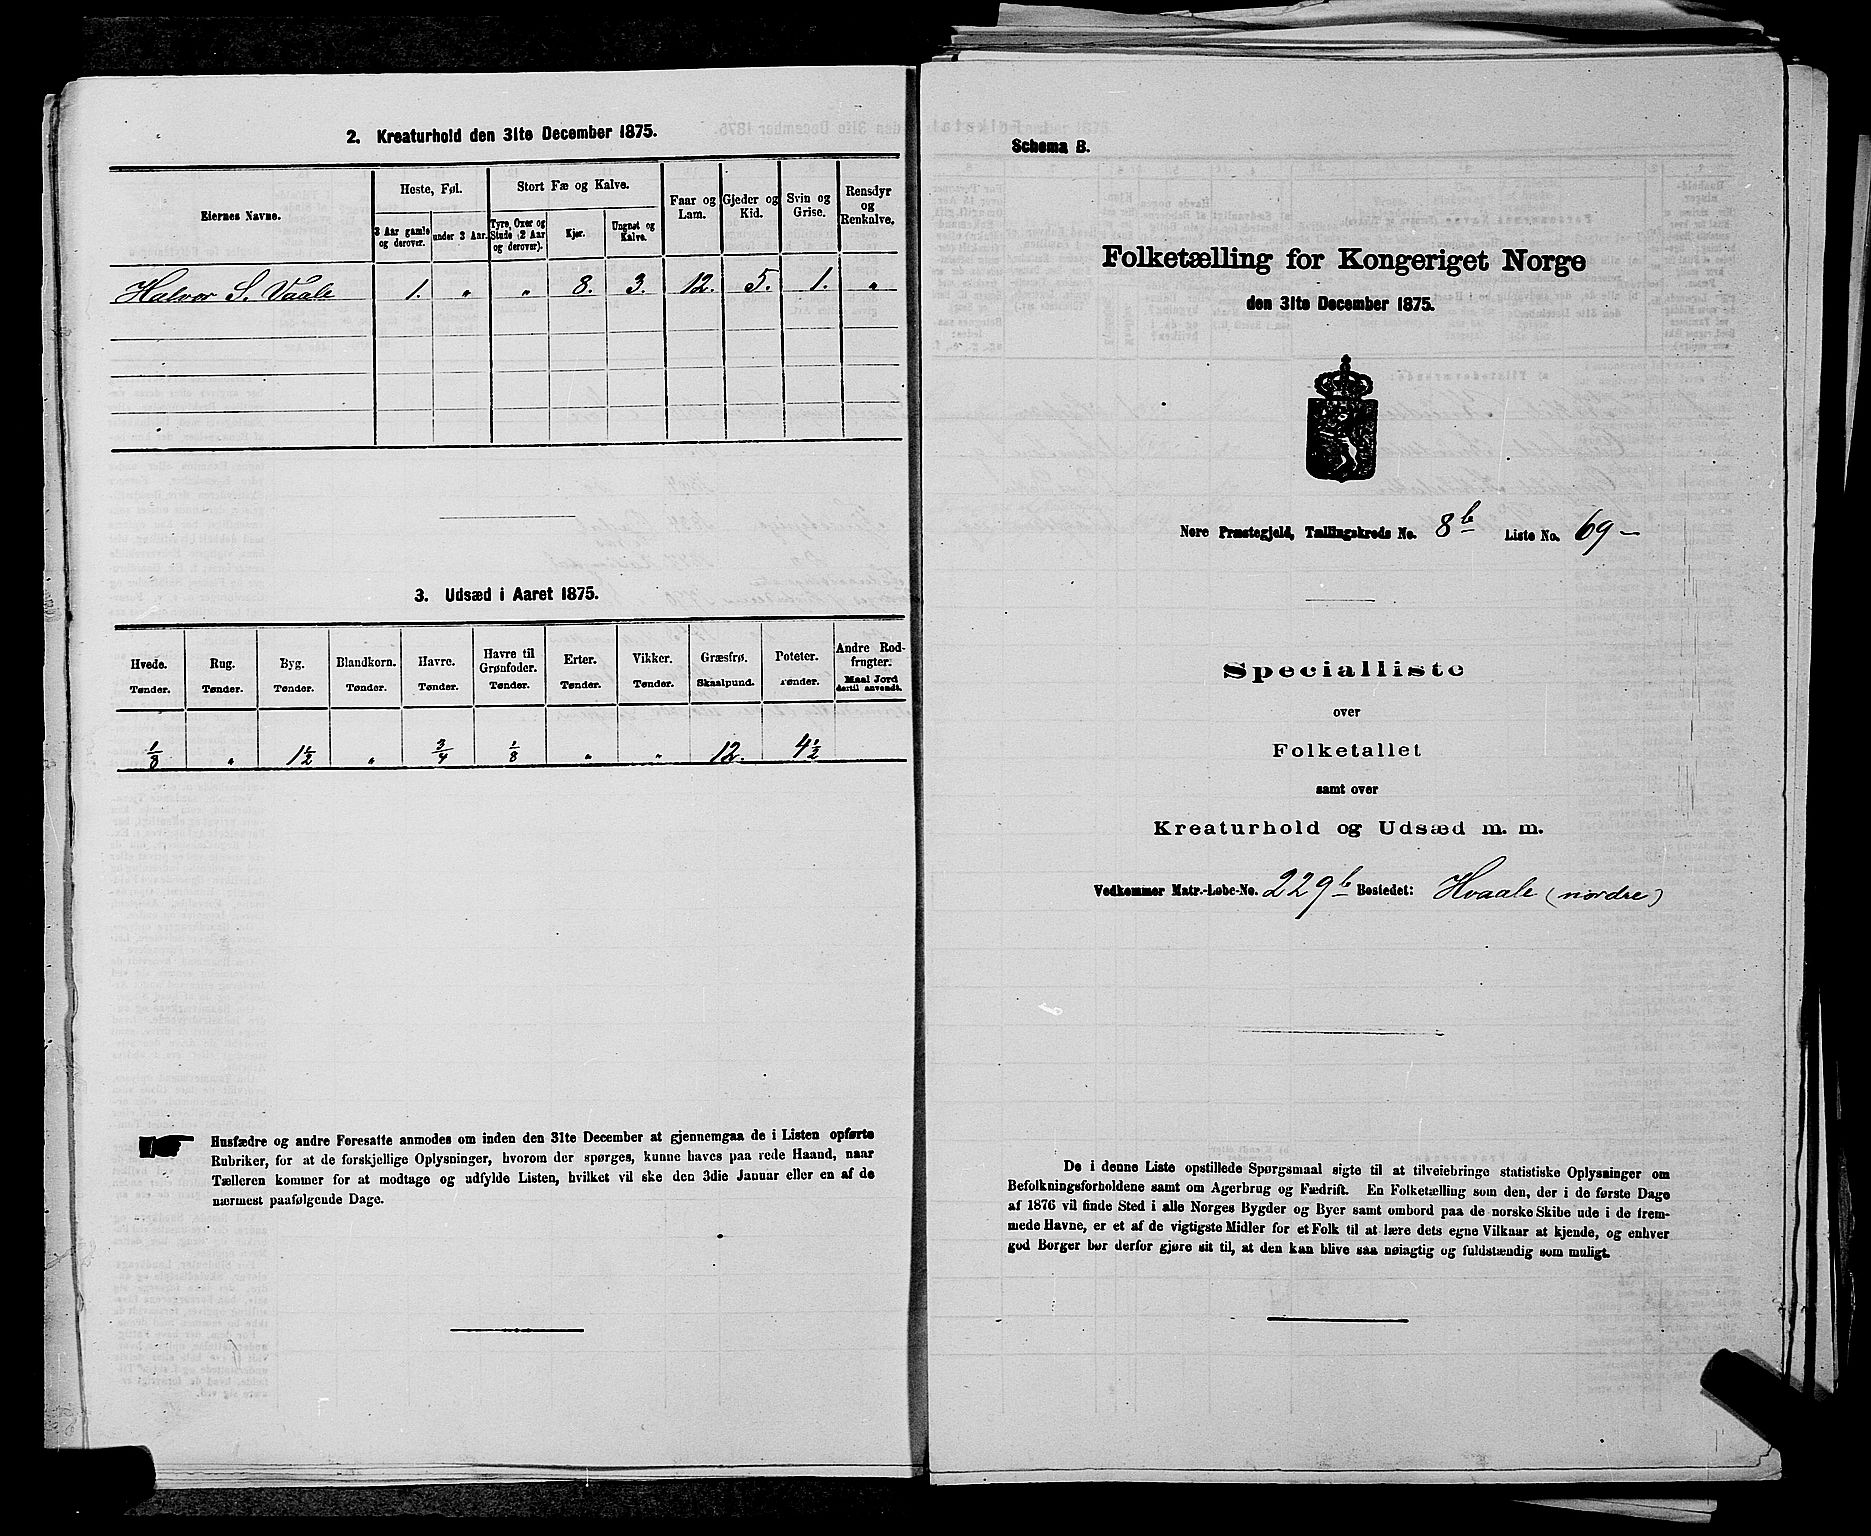 2. Kreaturhold den 31te December 1875.
Eiernes Navne. Heste, Føl. Stort Fæ og Kalve. Faar og Lam. Gjeder og Kid. Svin og Grise. Rensdyr og Renkalve.
3 Aar gamle og derover. under 3 Aar. Tyre, Oxer og Stude (2 Aar og derover). Kjør. Ungnøt og Kalve.
Halvor S. Vaale 1. " " 8. 3. 12. 5. 1. "
3. Udsæd i Aaret 1875.
Hvede. Rug. Byg. Blandkorn. Havre. Havre til Grønfoder. Erter. Vikker. Græsfrø. Poteter. Andre Rodfrugter.
Tønder. Tønder. Tønder. Tønder. Tønder. Tønder. Tønder. Tønder. Skaalpund. Tønder. Maal Jord dertil anvendt.
1/8 " 1 1/2 " 3/4 1/8 " " 12. 4 1/2
Husfædre og andre Foresatte anmodes om inden den 31te December at gjennemgaa de i Listen opførte
Rubriker, for at de forskjellige Oplysninger, hvorom der spørges, kunne haves paa rede Haand, naar
Tælleren kommer for at modtage og udfylde Listen, hvilket vil ske den 3die Januar eller en af de
nærmest paafølgende Dage.
Schema B.
Folketælling for Kongeriget Norge
den 31te December 1875.
Nore Præstegjeld, Tællingskreds No. 8b Liste No. 69 –
Specialliste
over
Folketallet
samt over
Kreaturhold og Udsæd m. m.
Vedkommer Matr.-Løbe-No. 229b Bostedet: Hvaale (nordre)
De i denne Liste opstillede Spørgsmaal sigte til at tilveiebringe statistiske Oplysninger om
Befolkningsforholdene samt om Agerbrug og Fædrift. En Folketælling som den, der i de første Dage
af 1876 vil finde Sted i alle Norges Bygder og Byer samt ombord paa de norske Skibe ude i de frem-
mede Havne, er et af de vigtigste Midler for et Folk til at lære dets egne Vilkaar at kjende, og enhver
god Borger bør derfor gjøre sit til, at den kan blive saa nøiagtig og fuldstændig som muligt.